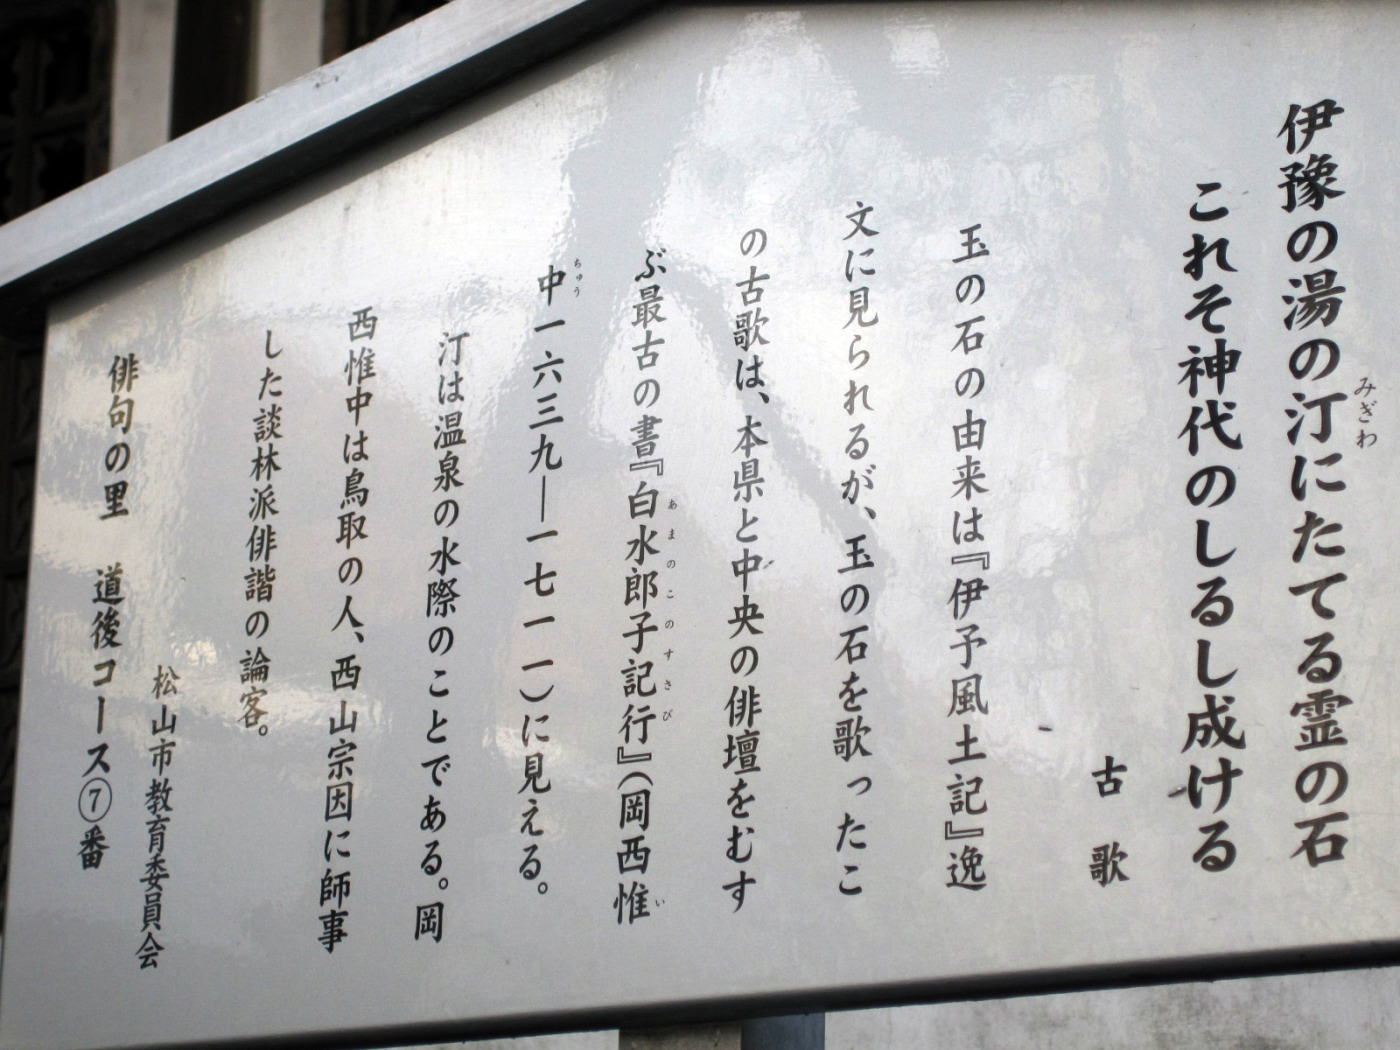 伊豫の湯の汀にたてる霊の石
みぎわ
これそ神代のしるし成ける
古歌
玉の石の由来は『伊予風土記』逸
文に見られるが、玉の石を歌ったこ
の古歌は、本県と中央の俳壇をむす
ぶ最古の書『白水郎子記行』（岡西惟
あまのこのすさび
い
中一六三九―一七一一）に見える。
ちゅう
汀は温泉の水際のことである。岡
西惟中は鳥取の人、西山宗因に師事
した談林派俳諧の論客。
松山市教育委員会
俳句の里　道後コース⑦番